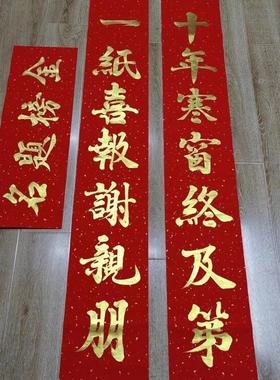 十年寒窗終及第
一紙喜報謝親朋
金榜題名